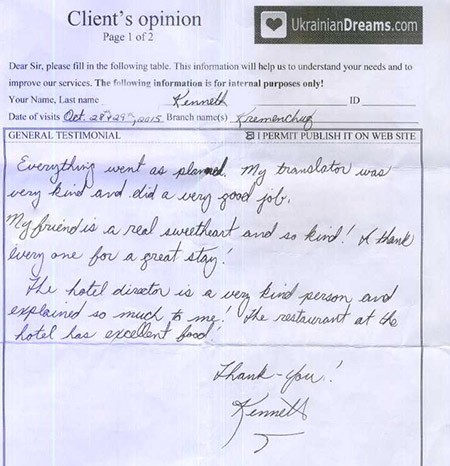 Client's opinion
Page 1 of 2
UkrainianDreams.com
Dear Sir, please fill in the following table. This information will help us to understand your needs and to
improve our services. The following information is for internal purposes only!
Your Name, Last name Kenneth ID
Date of visits Oct. 28th 29th, 2015 Branch name(s) Kremenchug
GENERAL TESTIMONIAL I PERMIT PUBLISH IT ON WEB SITE
Everything went as planned. My translator was
very kind and did a very good job.
My friend is a real sweetheart and so kind! I thank
every one for a great stay!
The hotel director is a very kind person and
explained so much to me! The restaurant at the
hotel has excellent food!
Thank-you!
Kenneth